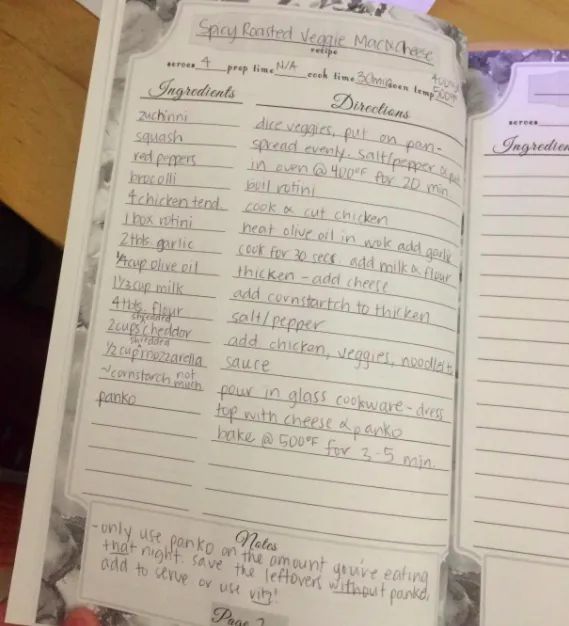 Spicy Roasted Veggie Mac & Cheese
recipe
serves 4 prep time N/A cook time 30min oven temp 400°F 500°F
Ingredients
zuchinni
squash
red peppers
brocolli
4 chicken tend.
1 box rotini
2 tbls. garlic
1/4 cup olive oil
1 1/3 cup milk
4 tbls. flour
2 cups shredded cheddar
1/2 cup shredded mozzarella
~cornstarch not much
panko
Directions
dice veggies, put on pan-
spread evenly. salt/pepper & put
in oven @ 400°F for 20 min.
boil rotini
cook & cut chicken
heat olive oil in wok add garlic
cook for 30 secs. add milk & flour
thicken - add cheese
add cornstartch to thicken
salt/pepper
add chicken, veggies, noodles to
sauce
pour in glass cookware - dress
top with cheese & panko
bake @ 500°F for 3-5 min.
Notes
- only use panko on the amount you're eating
that night. save the leftovers without panko,
add to serve or use
Page
serves
Ingredien